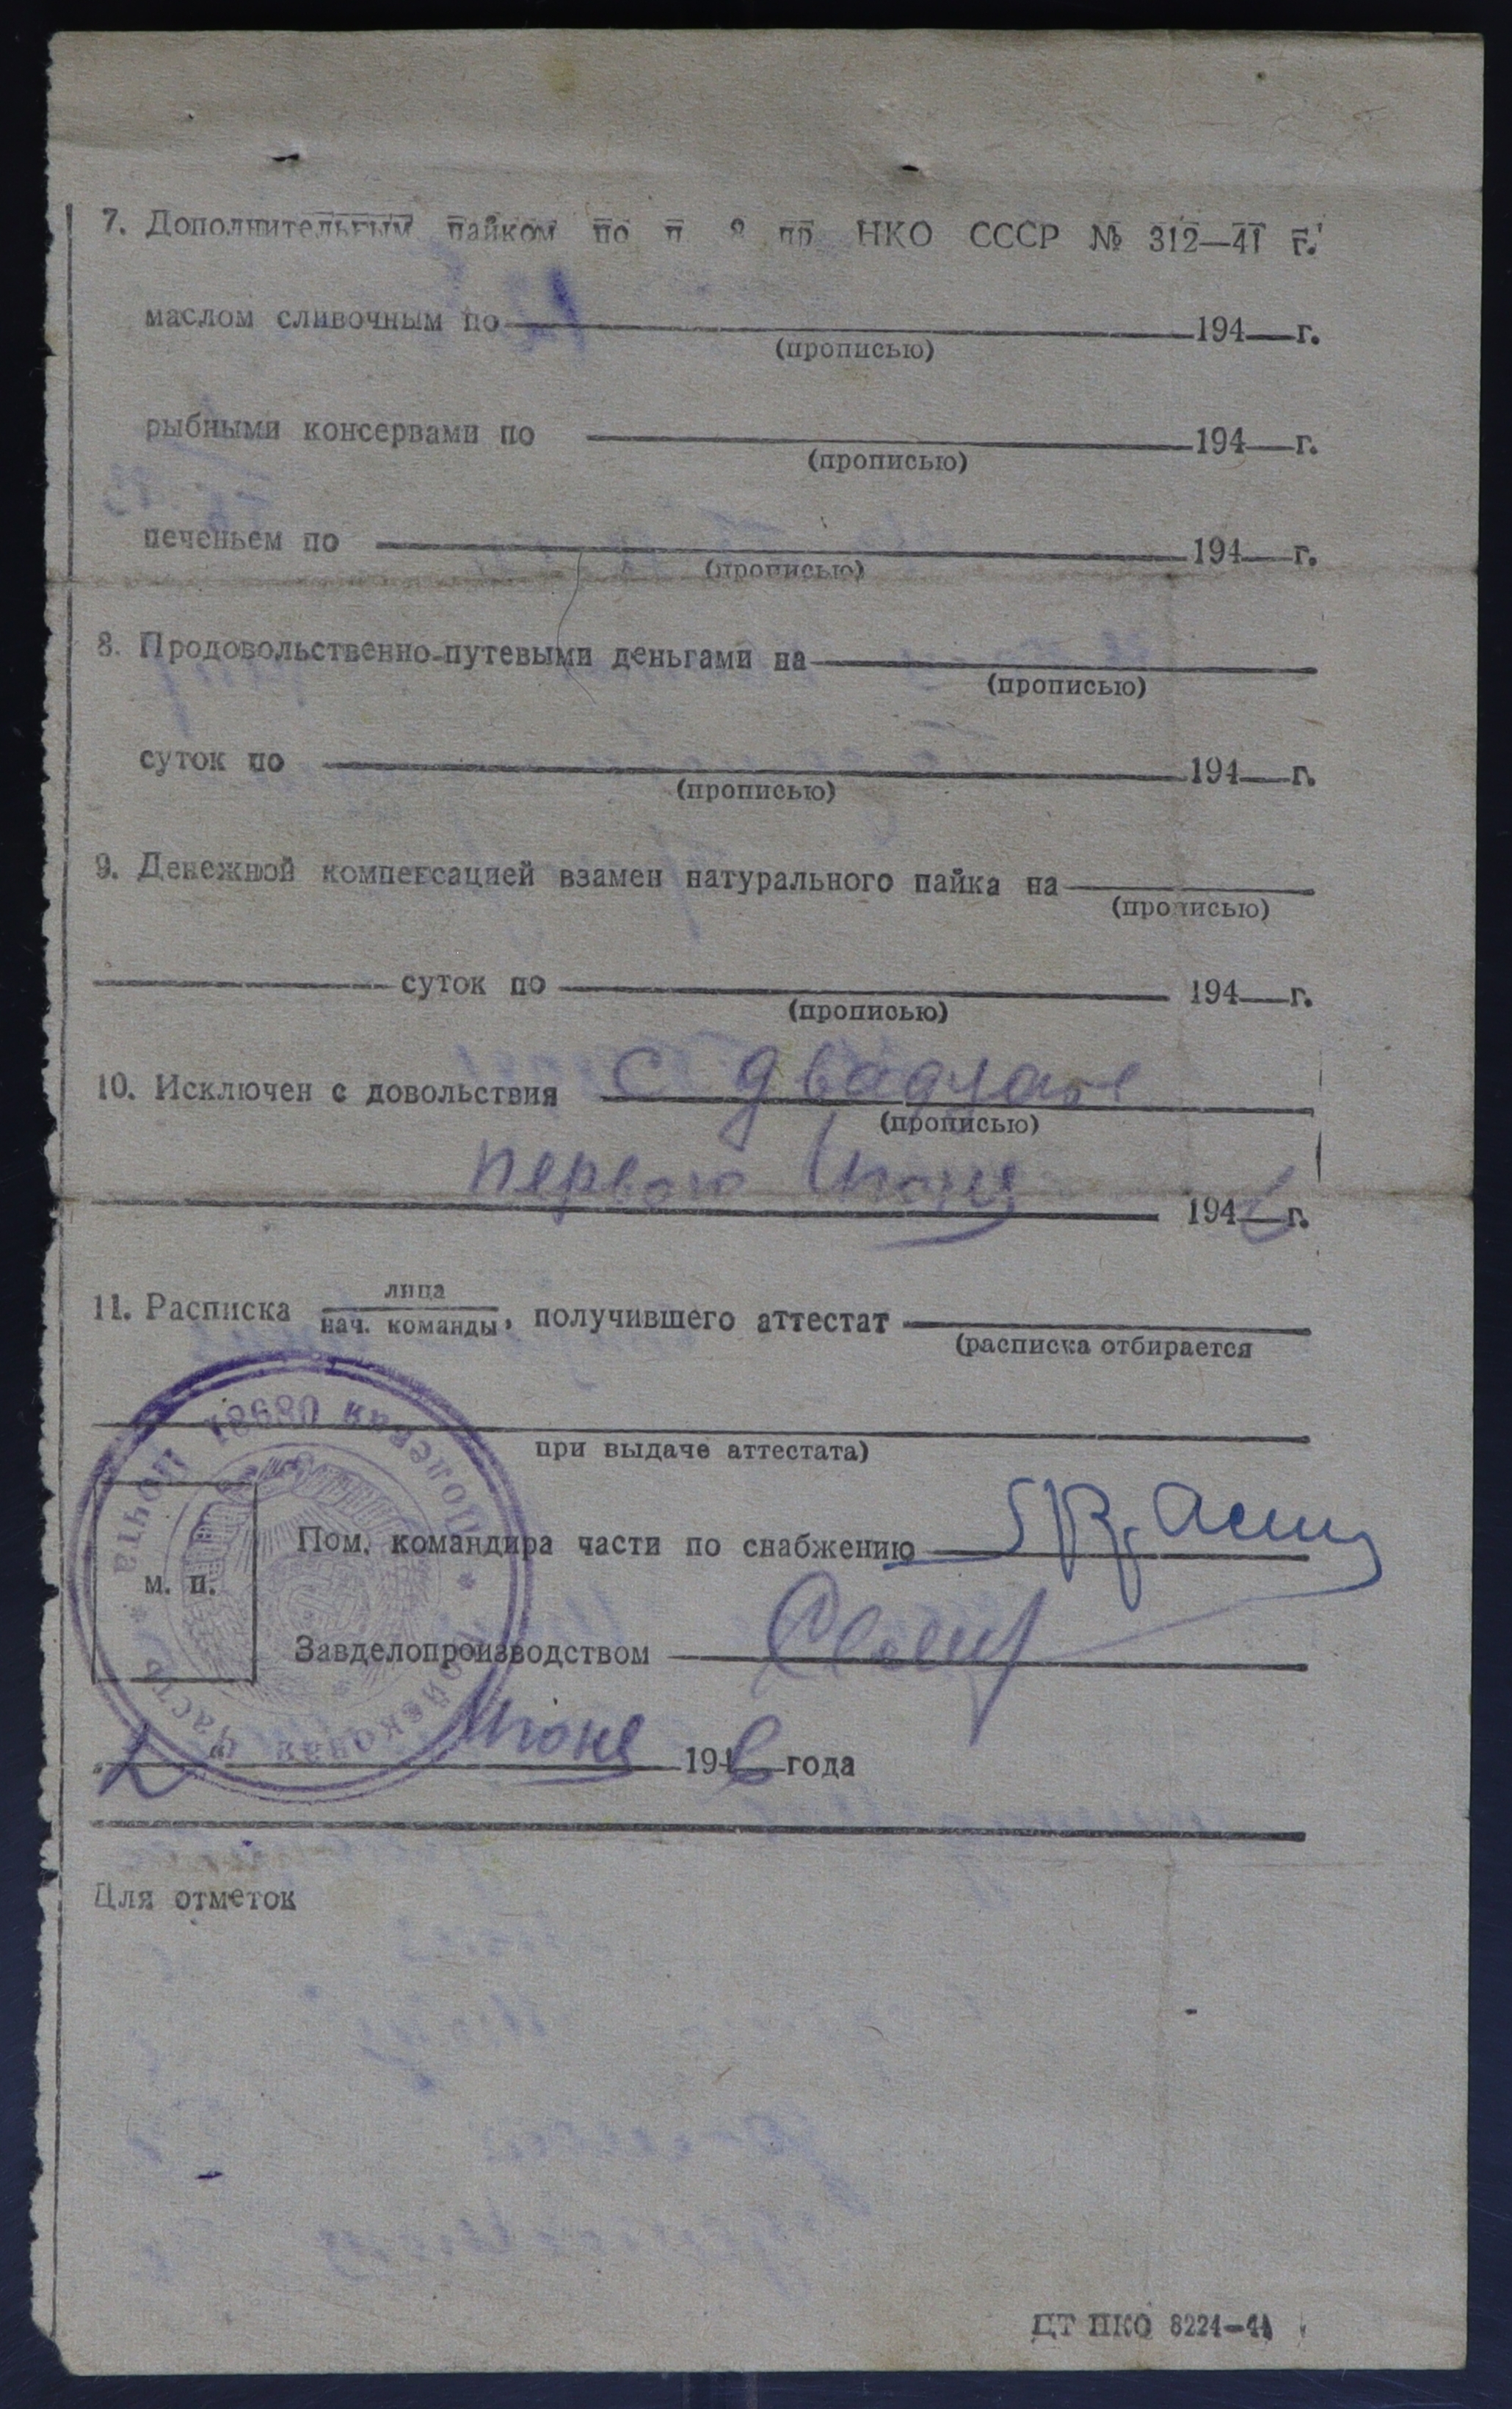 7. Дополнительным пайком по п. 2 пр НКО СССР № 312—41 г.
маслом сливочным по 194 г.
(прописью)
рыбными консервами по 194 г.
(прописью)
печеньем по 194 г.
(прописью)
8. Продовольственно-путевыми деньгами на
(прописью)
суток по 194 г.
(прописью)
9. Денежной компенсацией взамен натурального пайка на
(прописью)
суток по 194 г.
(прописью)
10. Исключен с довольствия с двадцать
(прописью)
первого Июня 194 г.
11. Расписка лица
нач. команды, получившего аттестат
(расписка отбирается
при выдаче аттестата)
Полевая Почта 08981 * Войсковая часть *
Пом. командира части по снабжению
м. п.
Завделопроизводством
Июня 1946 года
Для отметок
ЦТ НКО 8224—44